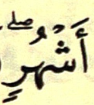 أَشْهُرٍۖ